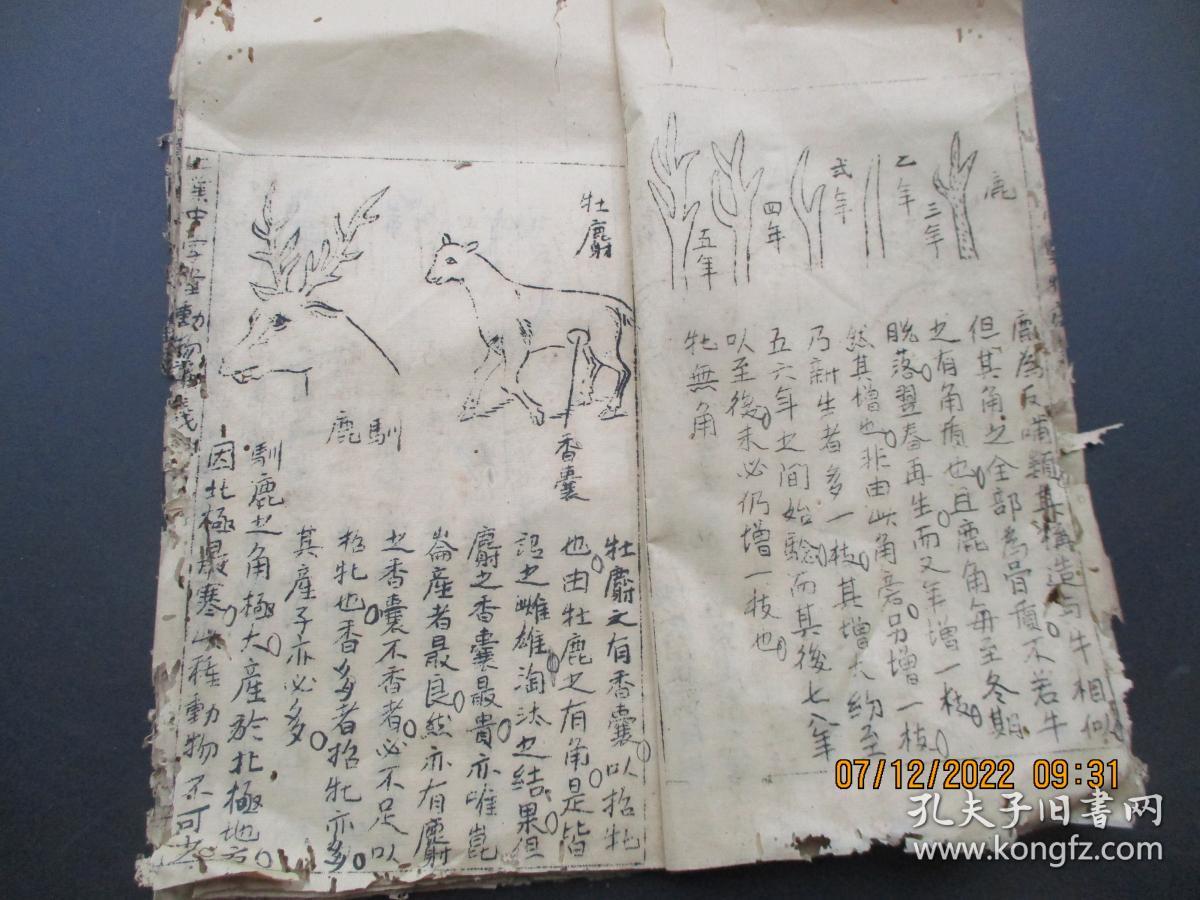 鹿
三年
乙年
弍年
四年
五年
鹿為反哺類其構造与牛相似
但其角之全部為骨質不若牛
之有角質也且鹿角每至冬期
脱落翌春再生而又年增一枝
然其增也非由此角旁另增一枝
乃新生者多一枝其增大約至
五六年之间始騐而其後七八年
以至後未必仍增一枝也
牝無角
牡麝
香囊
馴鹿
牡麝之有香囊以招牝
也由牡鹿之有角是皆
謂之雌雄淘汰之结果但
麝之香囊最贵亦唯崑
崙產者最良然亦有麝
之香囊不香者必不足以
招牝也香多者招牝亦多
其產子亦必多
馴鹿之角極大產於北極地方
因北極最寒此種動物不可少
中学堂動物
07/12/2022 09:31
孔夫子旧書网
www.kongfz.com